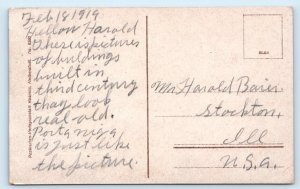 Feb 18 1919
Hellow Harold
these is pictures
of buildings
built in
third century
thay look
real old.
Porta nigra
is just like
the picture.
Mr Harold Baier
Stockton,
Ill
U.S.a.